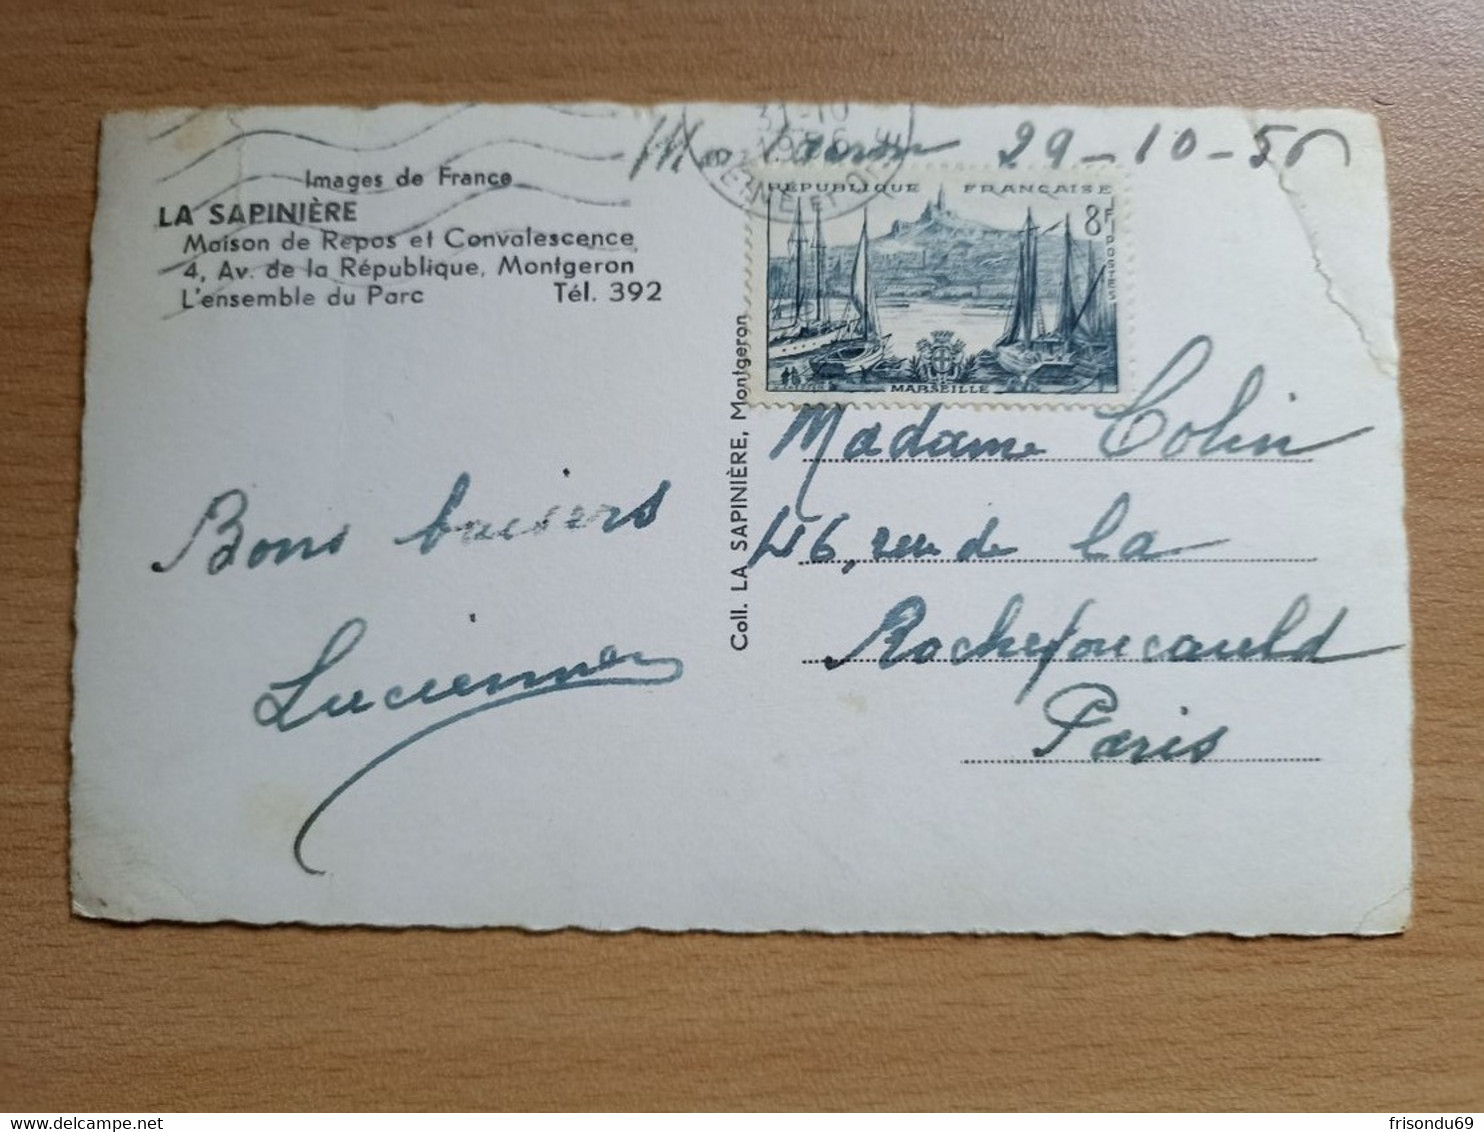 Images de France
LA SAPINIÈRE
Maison de Repos et Convalescence
4, Av. de la République, Montgeron
L'ensemble du Parc Tél. 392
31-10
SEINE ET OISE
29-10-56
RÉPUBLIQUE FRANÇAISE
8F
POSTES
MARSEILLE
Coll. LA SAPINIÈRE, Montgeron
Bons baisers
Lucienne
Madame Colin
46, rue de la
Rochefoucauld
Paris
delcampe.net
frisondu69